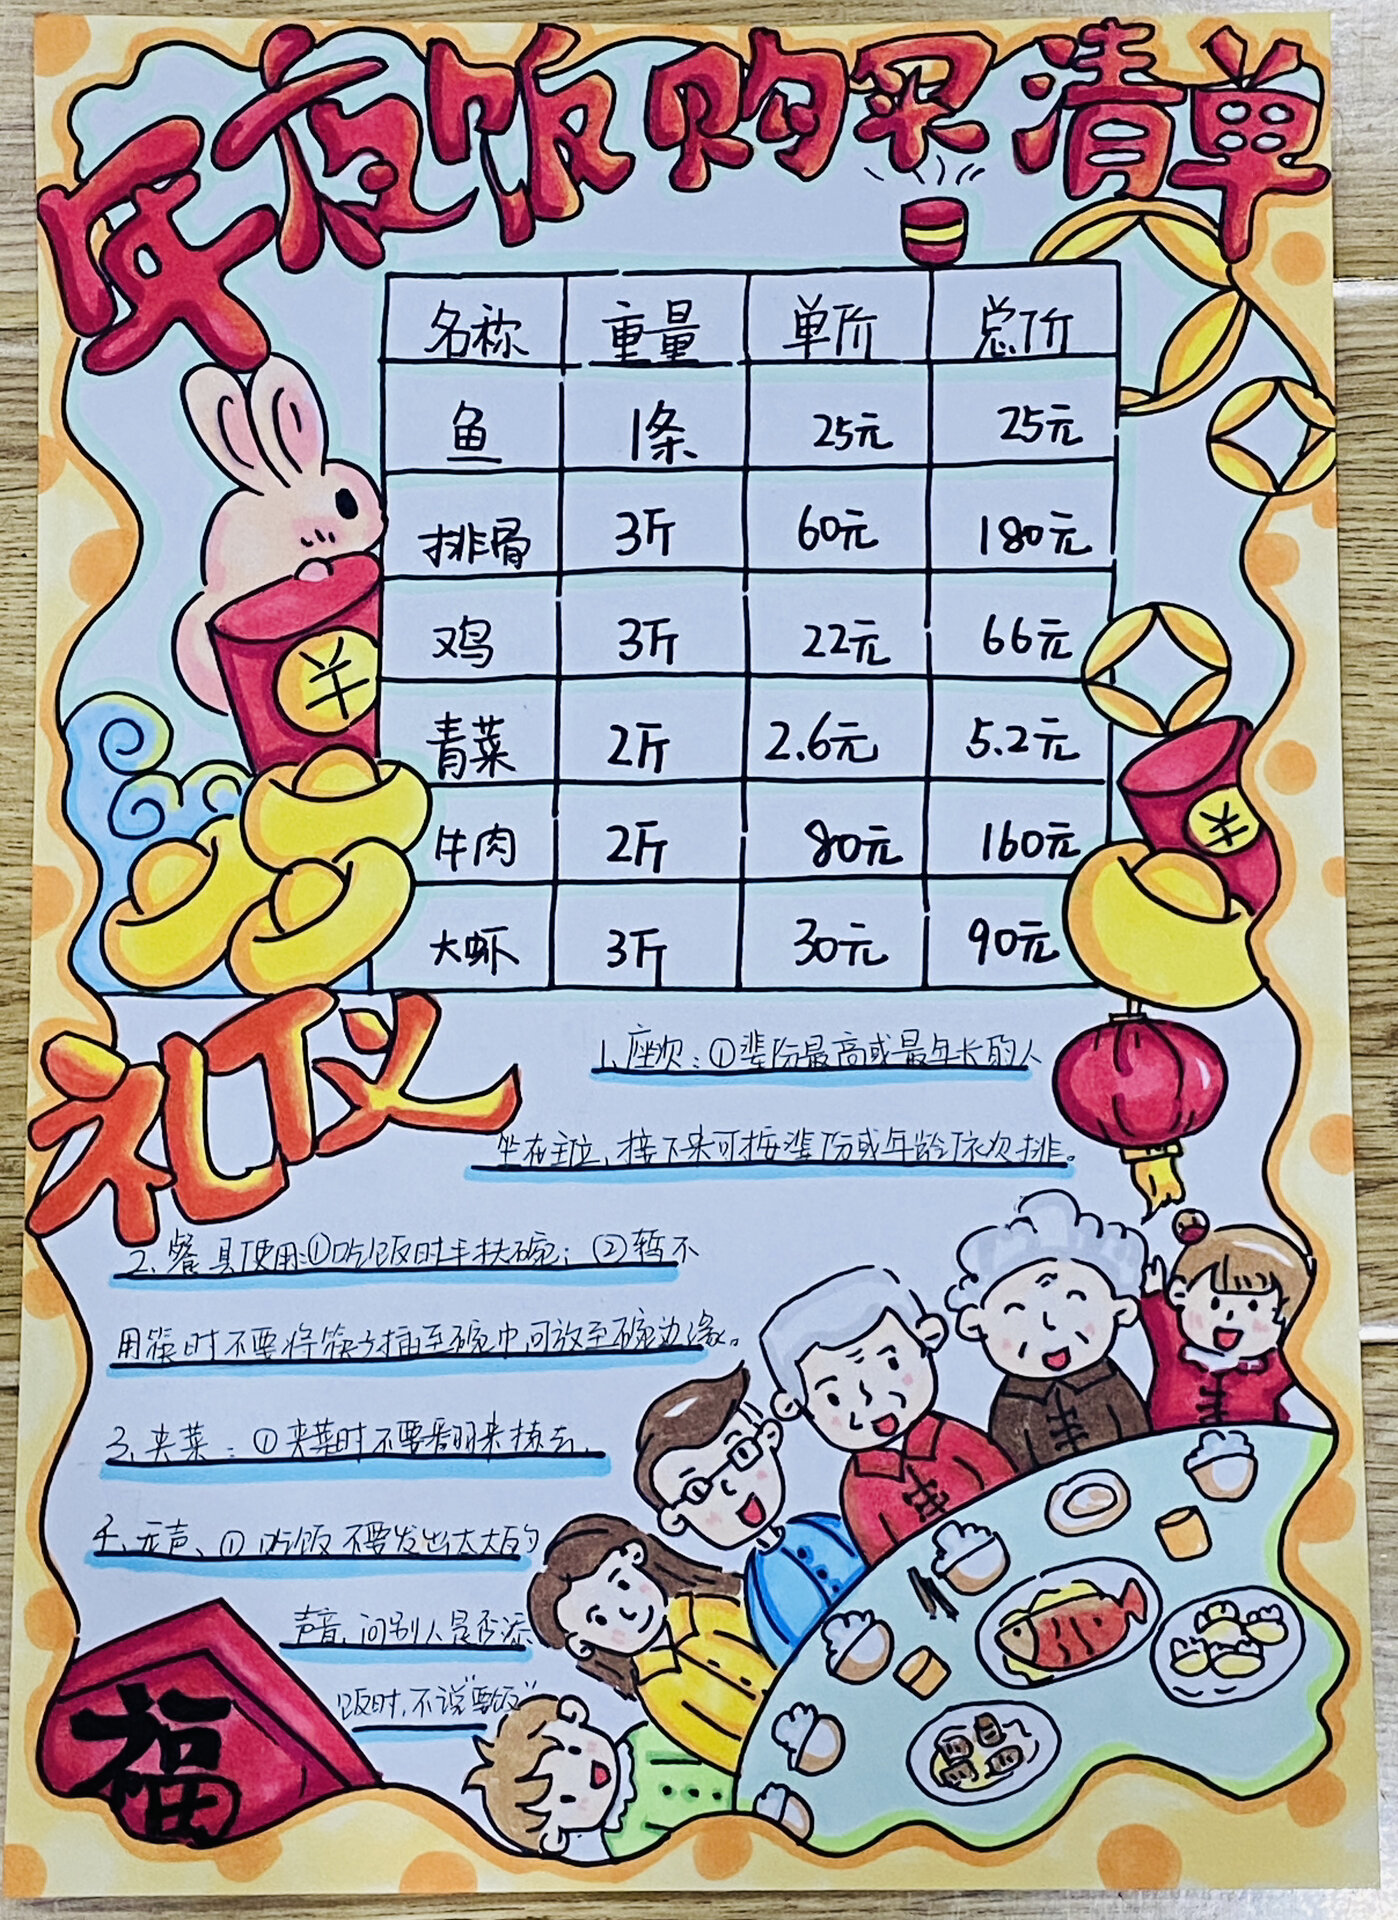 年夜饭购买清单
名称 重量 单价 总价
鱼 1条 25元 25元
排骨 3斤 60元 180元
鸡 3斤 22元 66元
青菜 2斤 2.6元 5.2元
牛肉 2斤 80元 160元
大虾 3斤 30元 90元
羊
羊
礼仪
1、座次：①辈份最高或最年长的人
坐在主位、接下来可按辈份或年龄依次排。
2、餐具使用：①吃饭时手扶碗；②暂不
用筷时不要将筷子插至碗中可放至碗边缘。
3、夹菜：①夹菜时不要翻来拣去、
4、无声、①吃饭不要发出太大的
声音、问别人是否添
饭时，不说"要饭"
福